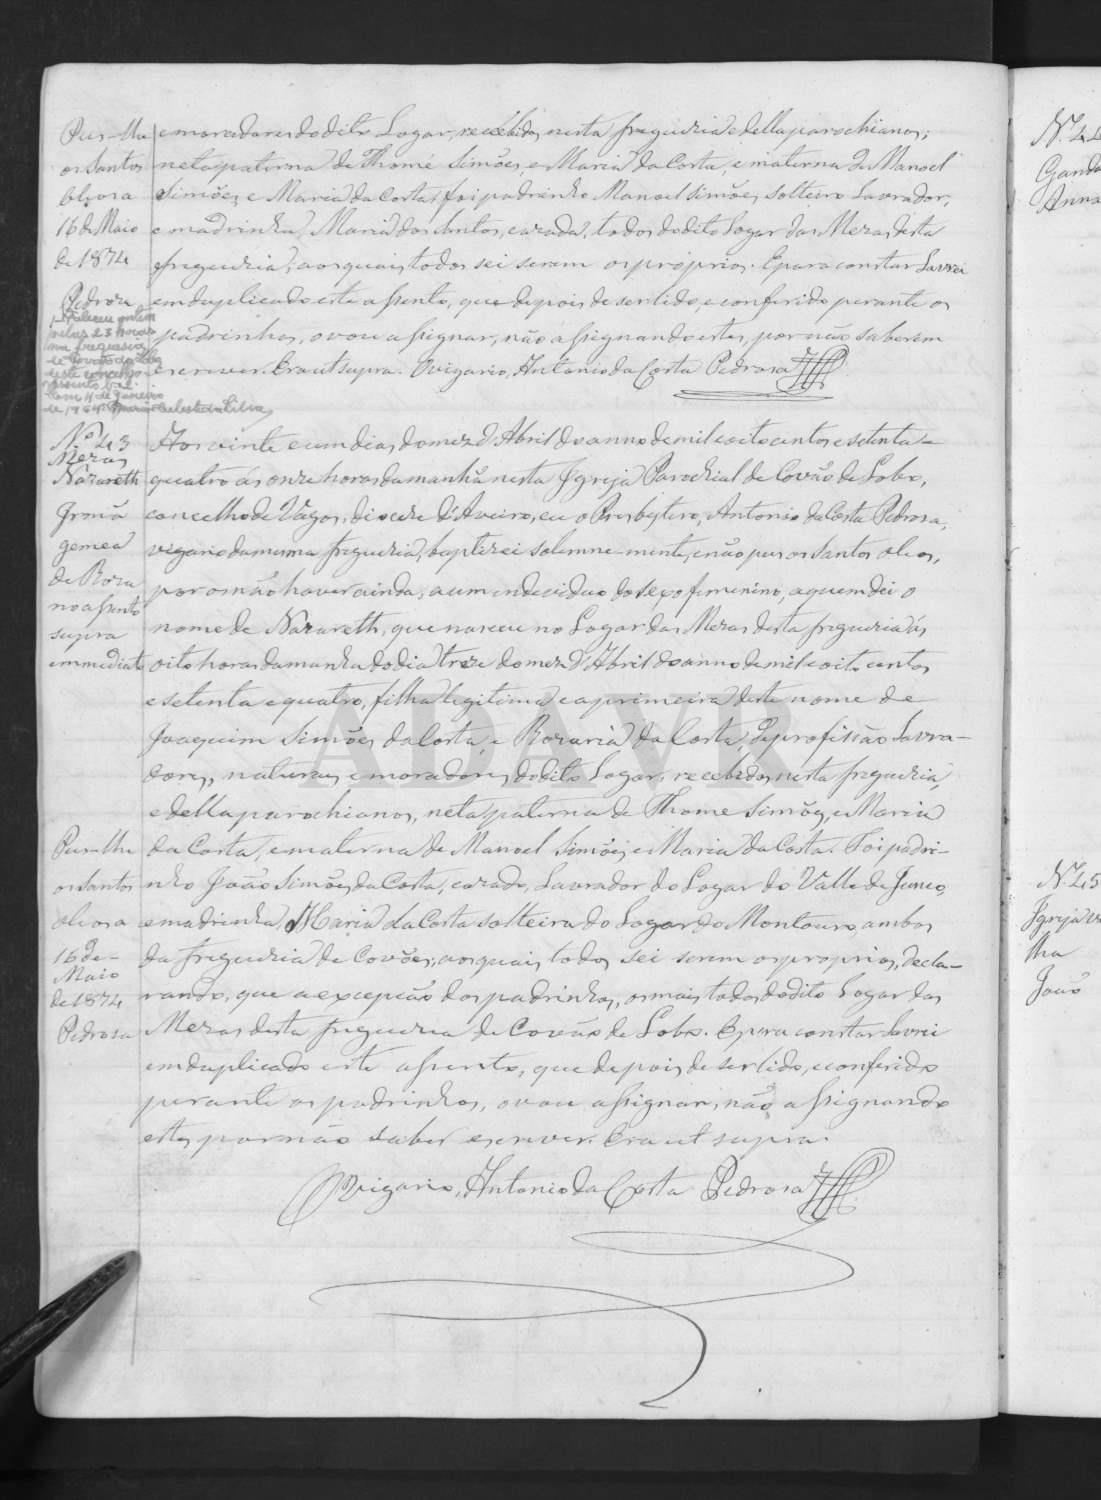 Puz-lhe
os Santos
Oleos a
16 de Maio
de 1874
Pedrosa
e moradores do dito Logar, recebidos nesta freguezia e della parochianos;
neta paterna de Thomé Simões, e Maria da Costa, e materna de Manoel
Simões, e Maria da Costa; foi padrinho Manoel Simões, solteiro Lavrador,
e madrinha Maria dos Santos, cazada, todos do dito Logar das Mezas desta
freguezia; aos quais todos sei serem os proprios. E para constar Lavrei
em duplicado este assento, que depois de ser lido, e conferido perante os
padrinhos, o vou assignar, não assignando estes, por não saberem
escrever. Era ut supra. O vigario, Antonio da Costa Pedrosa
Faleceu ontem
pelas 23 horas
na freguesia
de Covão do Lobo
deste concelho
assento nº 2.
de Janeiro
Nº 43
Mezas
Nazareth
Irmã
gemea
de Roza
no assento
supra
immediato
Aos vinte e um dias do mez d'Abril do anno de mil e oito centos e setenta
quatro ás onze horas da manhã nesta Igreja Parochial de Covão do Lobo,
concelho de Vagos, diocese d'Aveiro, eu o Presbytero, Antonio da Costa Pedrosa,
vigario da mesma freguezia, baptizei solemne-mente, e não puz os santos oleos,
por os não haver ainda, a um individuo do sexo femenino, a quem dei o
nome de Nazareth, que nasceu no Logar das Mezas desta freguezia ás
oito horas da manhã do dia treze do mez d'Abril do anno de mil e oito centos
e setenta e quatro, filha legitima e a primeira deste nome de
Joaquim Simões da Costa, e Rozaria da Costa, de profissão Lavra-
dores, naturaes e moradores do dito Logar, recebidos nesta freguezia,
e della parochianos, neta paterna de Thome Simões, e Maria
da Costa, e materna de Manoel Simões e Maria da Costa. Foi padri-
nho João Simões da Costa, cazado, Lavrador do Logar do Valle de Junco,
e madrinha, Maria da Costa solteira do Logar do Montouro, ambos
da freguezia de Covões; aos quais todos sei serem os proprios, decla-
rando, que a excepção dos padrinhos, os mais todos do dito Logar das
Mezas desta freguezia de Covão do Lobo. E para constar Lavrei
em duplicado este assento, que depois de ser lido, e conferido
perante os padrinhos, o vou assignar, não assignando
estes, por não saber escrever. Era ut supra.
O vigario, Antonio da Costa Pedrosa
Puz-lhe
os Santos
oleos a
16 de-
Maio
de 1874
Pedrosa
ADAVR
Nº 44
Anna
Nº 45
Igreja ve
lha
João